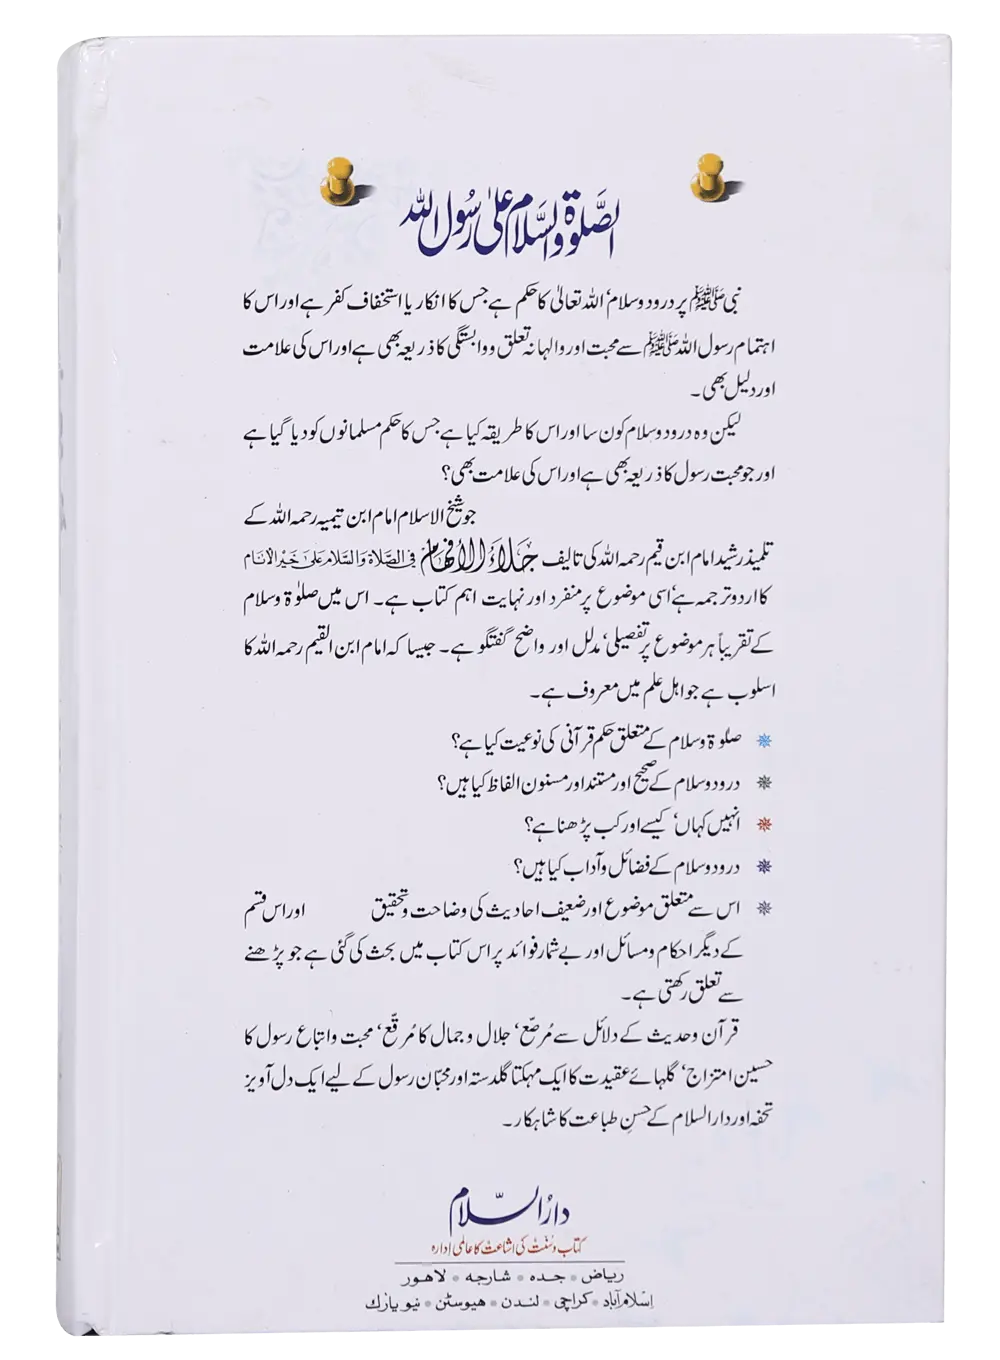 الصلوٰۃ والسلام علیٰ رسول اللہ
نبی ﷺ پر درود وسلام، اللہ تعالیٰ کا حکم ہے جس کا انکار یا استخفاف کفر ہے اور اس کا
اہتمام رسول اللہ ﷺ سے محبت اور والہانہ تعلق و وابستگی کا ذریعہ بھی ہے اور اس کی علامت
اور دلیل بھی۔
لیکن وہ درود وسلام کون سا اور اس کا طریقہ کیا ہے جس کا حکم مسلمانوں کو دیا گیا ہے
اور جو محبت رسول کا ذریعہ بھی ہے اور اس کی علامت بھی؟
جو شیخ الاسلام امام ابن تیمیہ رحمہ اللہ کے
تلمیذ رشید امام ابن قیم رحمہ اللہ کی تالیف جلاء الأفهام في الصلاة والسلام على خير الأنام
کا اردو ترجمہ ہے، اسی موضوع پر منفرد اور نہایت اہم کتاب ہے۔ اس میں صلوٰۃ وسلام
کے تقریباً ہر موضوع پر تفصیلی، مدلل اور واضح گفتگو ہے۔ جیسا کہ امام ابن القیم رحمہ اللہ کا
اسلوب ہے جو اہل علم میں معروف ہے۔
صلوٰۃ وسلام کے متعلق حکم قرآنی کی نوعیت کیا ہے؟
درود وسلام کے صحیح اور مستند اور مسنون الفاظ کیا ہیں؟
انہیں کہاں، کیسے اور کب پڑھنا ہے؟
درود وسلام کے فضائل و آداب کیا ہیں؟
اس سے متعلق موضوع اور ضعیف احادیث کی وضاحت و تحقیق اور اس قسم
کے دیگر احکام ومسائل اور بے شمار فوائد پر اس کتاب میں بحث کی گئی ہے جو پڑھنے
سے تعلق رکھتی ہے۔
قرآن وحدیث کے دلائل سے مُرصّع، جلال و جمال کا مُرقّع، محبت واتباع رسول کا
حسین امتزاج، گلہائے عقیدت کا ایک مہکتا گلدستہ اور محبّان رسول کے لیے ایک دل آویز
تحفہ اور دارالسلام کے حسنِ طباعت کا شاہکار۔
دارالسلام
کتاب و سنت کی اشاعت کا عالمی ادارہ
ریاض • جدہ • شارجہ • لاہور
اسلام آباد • کراچی • لندن • ہیوسٹن • نیو یارک